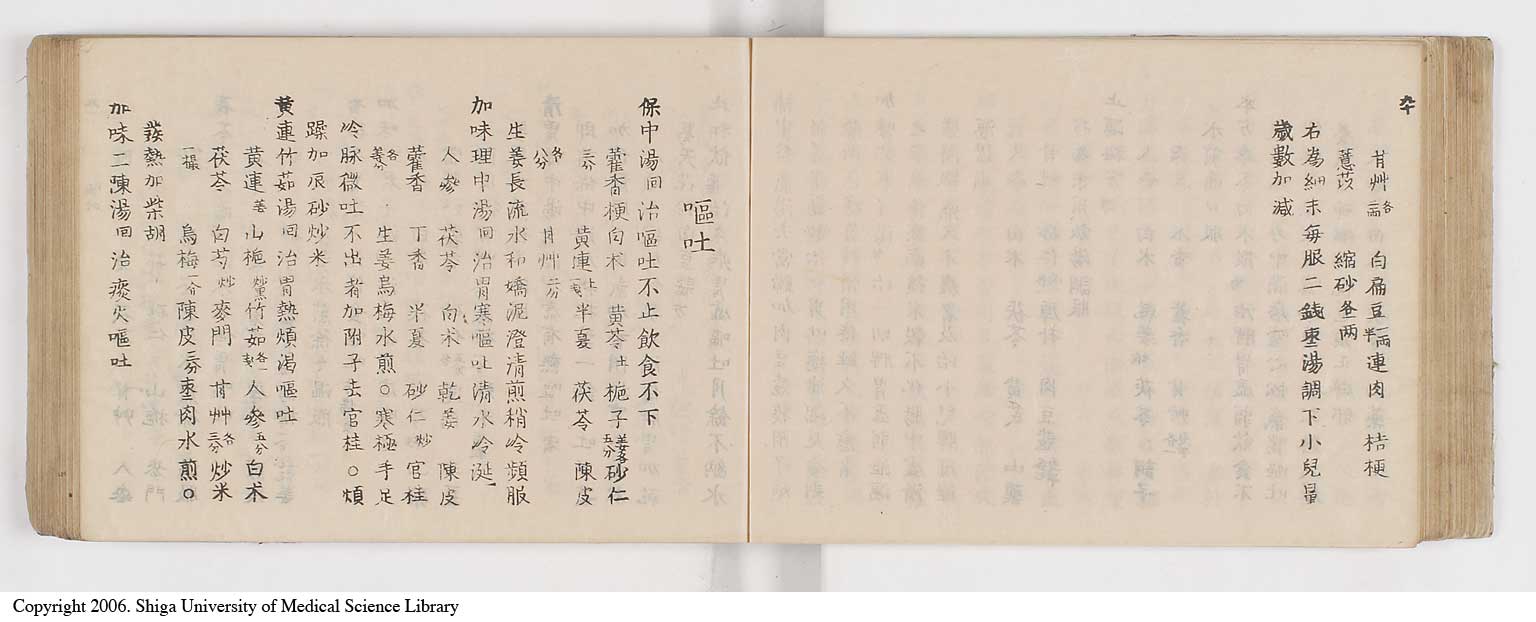 卆
甘艸 各二両 白扁豆 一両半 連肉 桔梗
薏苡 縮砂 各一両
右為細末毎服二銭棗湯調下小兒量
歳數加减
嘔吐
保中湯 回 治嘔吐不止飲食不下
藿香梗白术 黄芩 土 梔子 姜 砂仁
黄連 土 半夏 茯苓 陳皮
各八分 甘艸 二分
生姜長流水和嬌泥澄清煎稍冷頻服
加味理中湯 回 治胃寒嘔吐清水冷涎
人參 茯苓 白术 乾姜 陳皮
藿香 丁香 半夏 砂仁 炒 官桂
各等分 生姜烏梅水煎○寒極手足
冷脉微吐不出者加附子去官桂○煩
躁加辰砂炒米
黄連竹茹湯 回 治胃熱煩渴嘔吐
黄連 姜 山梔 炒黒 竹茹 各一 人參 五分 白术
茯苓 白芍 炒 麥門 甘艸 各三分 炒米
一撮 烏梅 一介 陳皮 棗肉水煎○
發熱加柴胡
加味二陳湯 回 治痰火嘔吐
Copyright 2006. Shiga University of Medical Science Library